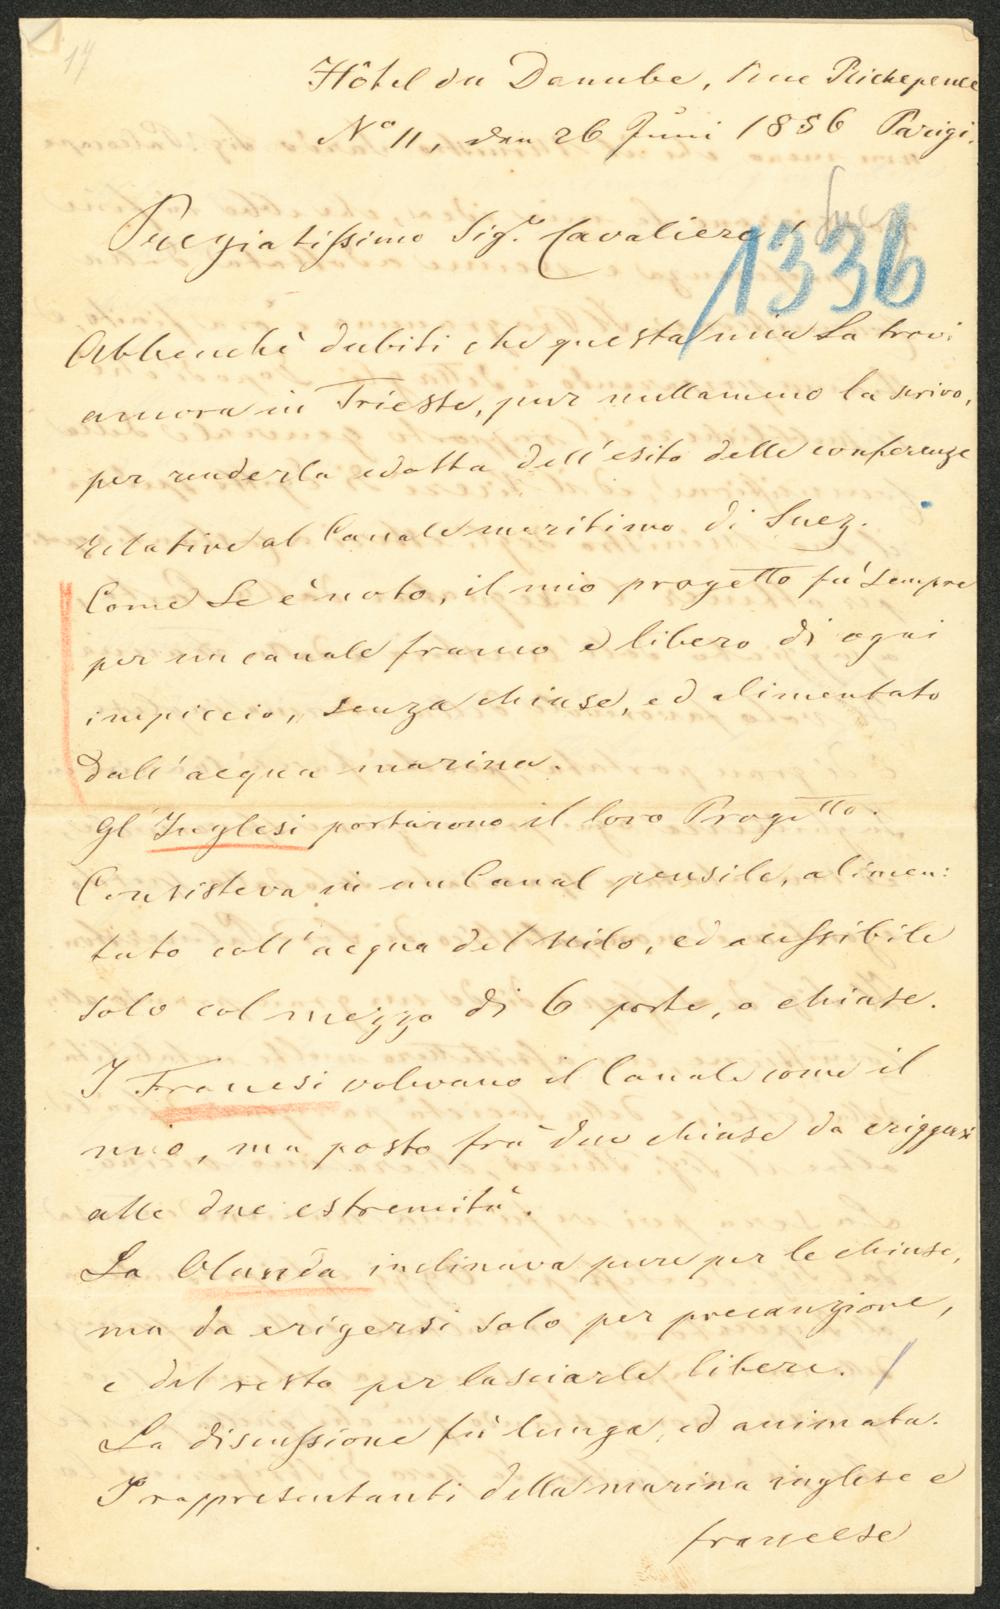 17
Hôtel du Danube, Rue Richepence
N.° 11, den 26 Juni 1856 Parigi.
Pregiatissimo Sig.r Cavaliere!
1336
Abbenchè dubiti che questa mia La trovi
ancora in Trieste, pur nullameno la scrivo,
per renderla edotta dell'esito delle conferenze
relative al Canale marittimo di Suez.
Come Le è noto, il mio progetto fù sempre
per un canale franco e libero di ogni
impiccio, senza chiuse, ed alimentato
dall'acqua marina.
Gl'Inglesi portarono il loro Progetto.
Consisteva in un Canal pensile, alimen:
tato coll'acqua del Nilo, ed acessibile
solo col mezzo di 6 porte, o chiuse.
I Francesi volevano il Canale come il
mio, ma posto frà due chiuse da eriggersi
alle due estremità.
La Olanda inclinava pure per le chiuse,
ma da erigersi solo per precauzione,
e del resto per lasciarle libere.
La discussione fù lunga, ed animata.
I rappresentanti della marina inglese e
francese